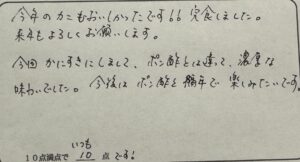 今年のカニもおいしかったです!! 完食しました。
来年もよろしくお願いします。
今回 かにすきにしまして、ポン酢とは違って、濃厚な
味わいでした。今後は ポン酢と 隔年で 楽しみたいです。
いつも
10点満点で 10 点 です!